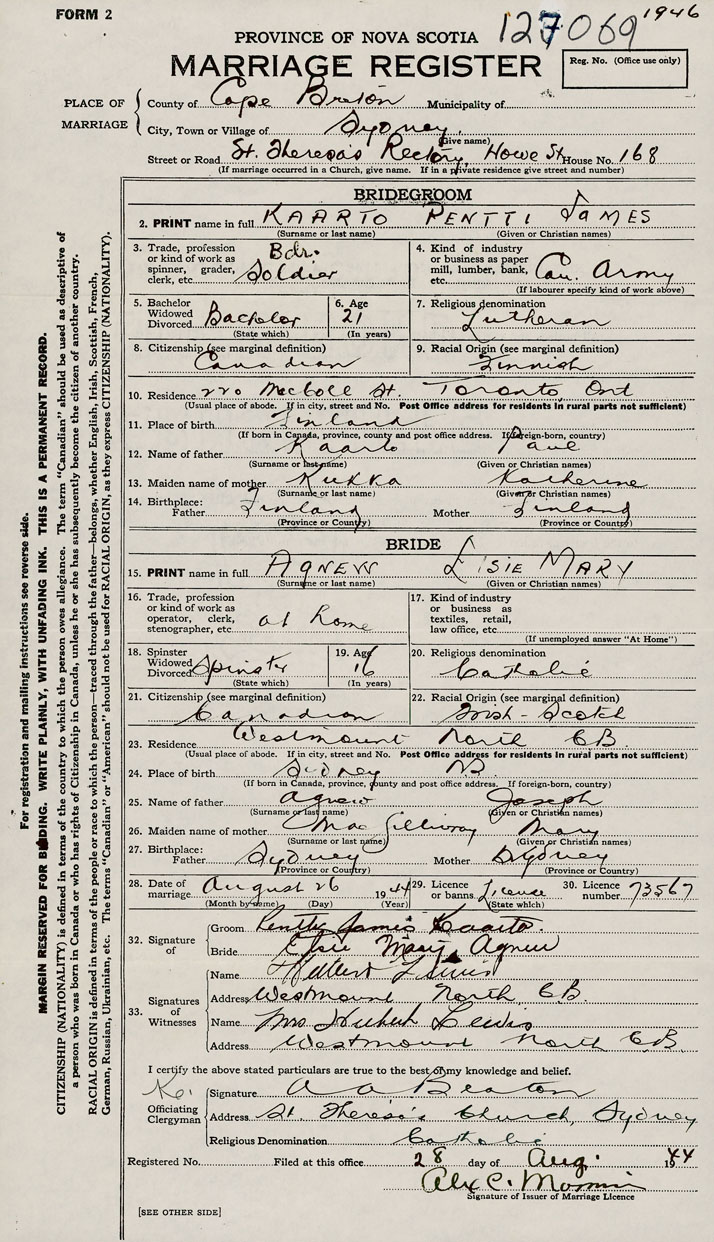 FORM 2
127069 1946
PROVINCE OF NOVA SCOTIA
MARRIAGE REGISTER
Reg. No. (Office use only)
PLACE OF MARRIAGE
County of Cape Breton Municipality of
City, Town or Village of Sydney
(Give name)
Street or Road St. Theresa's Rectory, Howe St House No. 168
(If marriage occurred in a Church, give name. If in a private residence give street and number)
BRIDEGROOM
2. PRINT name in full KAARTO PENTTI JAMES
(Surname or last name) (Given or Christian names)
3. Trade, profession or kind of work as spinner, grader, clerk, etc. Bdr. Soldier
4. Kind of industry or business as paper mill, lumber, bank, etc. Can. Army
(If labourer specify kind of work above)
5. Bachelor Widowed Divorced Bachelor
(State which)
6. Age 21
(In years)
7. Religious denomination Lutheran
8. Citizenship (see marginal definition) Canadian
9. Racial Origin (see marginal definition) Finnish
10. Residence 220 St. Toronto, Ont
(Usual place of abode. If in city, street and No. Post Office address for residents in rural parts not sufficient)
11. Place of birth Finland
(If born in Canada, province, county and post office address. If foreign-born, country)
12. Name of father Kaarto Paul
(Surname or last name) (Given or Christian names)
13. Maiden name of mother Kukka Katherine
(Surname or last name) (Given or Christian names)
14. Birthplace: Father Finland Mother Finland
(Province or Country) (Province or Country)
BRIDE
15. PRINT name in full AGNEW ELSIE MARY
(Surname or last name) (Given or Christian names)
16. Trade, profession or kind of work as operator, clerk, stenographer, etc. at home
17. Kind of industry or business as textiles, retail, law office, etc.
(If unemployed answer "At Home")
18. Spinster Widowed Divorced Spinster
(State which)
19. Age 16
(In years)
20. Religious denomination Catholic
21. Citizenship (see marginal definition) Canadian
22. Racial Origin (see marginal definition) Irish-Scotch
23. Residence Westmount North C B.
(Usual place of abode. If in city, street and No. Post Office address for residents in rural parts not sufficient)
24. Place of birth Sydney
(If born in Canada, province, county and post office address. If foreign-born, country)
25. Name of father Agnew Joseph
(Surname or last name) (Given or Christian names)
26. Maiden name of mother MacGillivray Mary
(Surname or last name) (Given or Christian names)
27. Birthplace: Father Sydney Mother Sydney
(Province or Country) (Province or Country)
28. Date of marriage August 26 1944
(Month by name) (Day) (Year)
29. Licence or banns Licence
(State which)
30. Licence number 73567
32. Signature of
Groom Pentti James Kaarto.
Bride Elsie Mary Agnew
33. Signatures of Witnesses
Name Hubert Lewis
Address Westmount North, C B.
Name Mrs Hubert Lewis
Address Westmount North C B.
I certify the above stated particulars are true to the best of my knowledge and belief.
Officiating Clergyman
Signature A A Beaton
Address St. Theresa's Church, Sydney
Religious Denomination Catholic
Registered No. Filed at this office 28 day of Aug. 1944
Alex C.
Signature of Issuer of Marriage Licence
[SEE OTHER SIDE]
For registration and mailing instructions see reverse side.
MARGIN RESERVED FOR BINDING. WRITE PLAINLY, WITH UNFADING INK. THIS IS A PERMANENT RECORD.
CITIZENSHIP (NATIONALITY) is defined in terms of the country to which the person owes allegiance. The term "Canadian" should be used as descriptive of
a person who was born in Canada or who has rights of Citizenship in Canada, unless he or she has subsequently become the citizen of another country.
RACIAL ORIGIN is defined in terms of the people or race to which the person—traced through the father—belongs, whether English, Irish, Scottish, French,
German, Russian, Ukrainian, etc. The terms "Canadian" or "American" should not be used for RACIAL ORIGIN, as they express CITIZENSHIP (NATIONALITY).